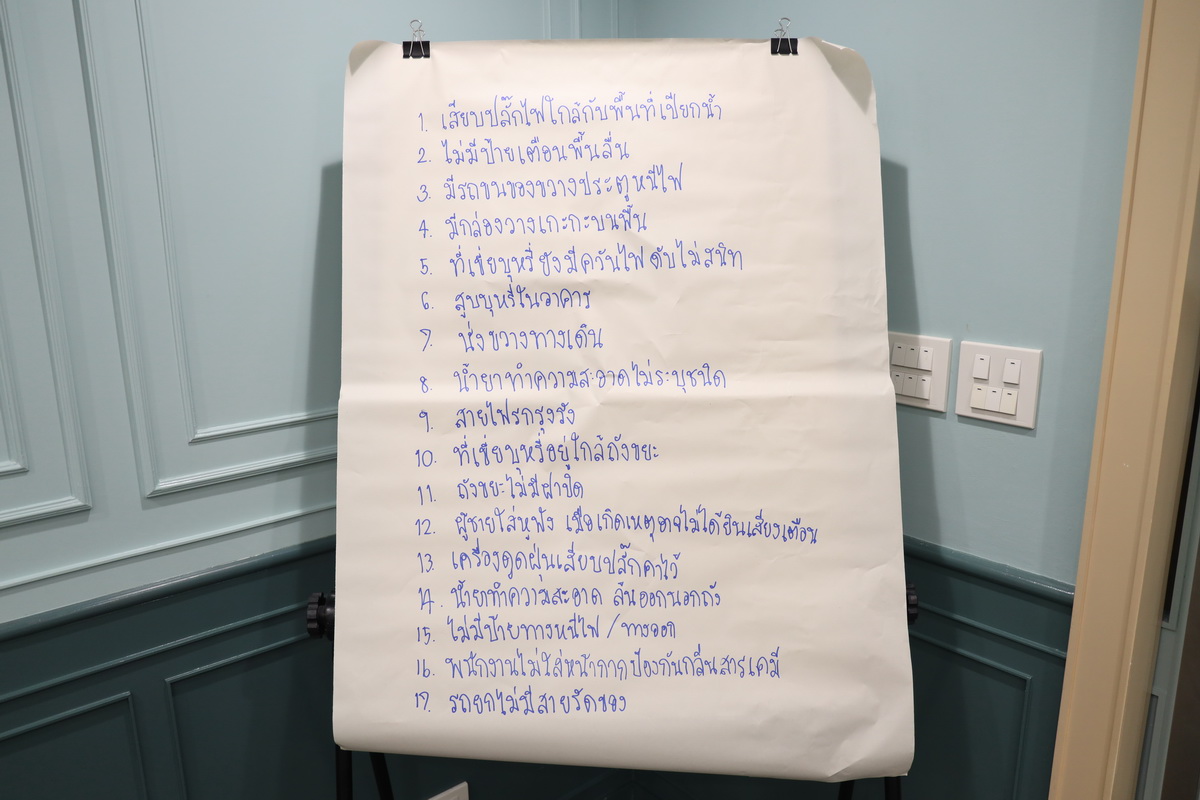 1. เสียบปลั๊กไฟใกล้กับพื้นที่เปียกน้ำ
2. ไม่มีป้ายเตือนพื้นลื่น
3. มีรถขนของขวางประตูหนีไฟ
4. มีกล่องวางเกะกะบนพื้น
5. ที่เขี่ยบุหรี่ยังมีควันไฟดับไม่สนิท
6. สูบบุหรี่ในอาคาร
7. นั่งขวางทางเดิน
8. น้ำยาทำความสะอาดไม่ระบุชนิด
9. สายไฟรกรุงรัง
10. ที่เขี่ยบุหรี่อยู่ใกล้ถังขยะ
11. ถังขยะไม่มีฝาปิด
12. ผู้ชายใส่หูฟัง เมื่อเกิดเหตุอาจไม่ได้ยินเสียงเตือน
13. เครื่องดูดฝุ่นเสียบปลั๊กคาไว้
14. น้ำยาทำความสะอาด ล้นออกนอกถัง
15. ไม่มีป้ายทางหนีไฟ / ทางออก
16. พนักงานไม่ใส่หน้ากากป้องกันกลิ่นสารเคมี
17. รถยกไม่มีสายรัดของ